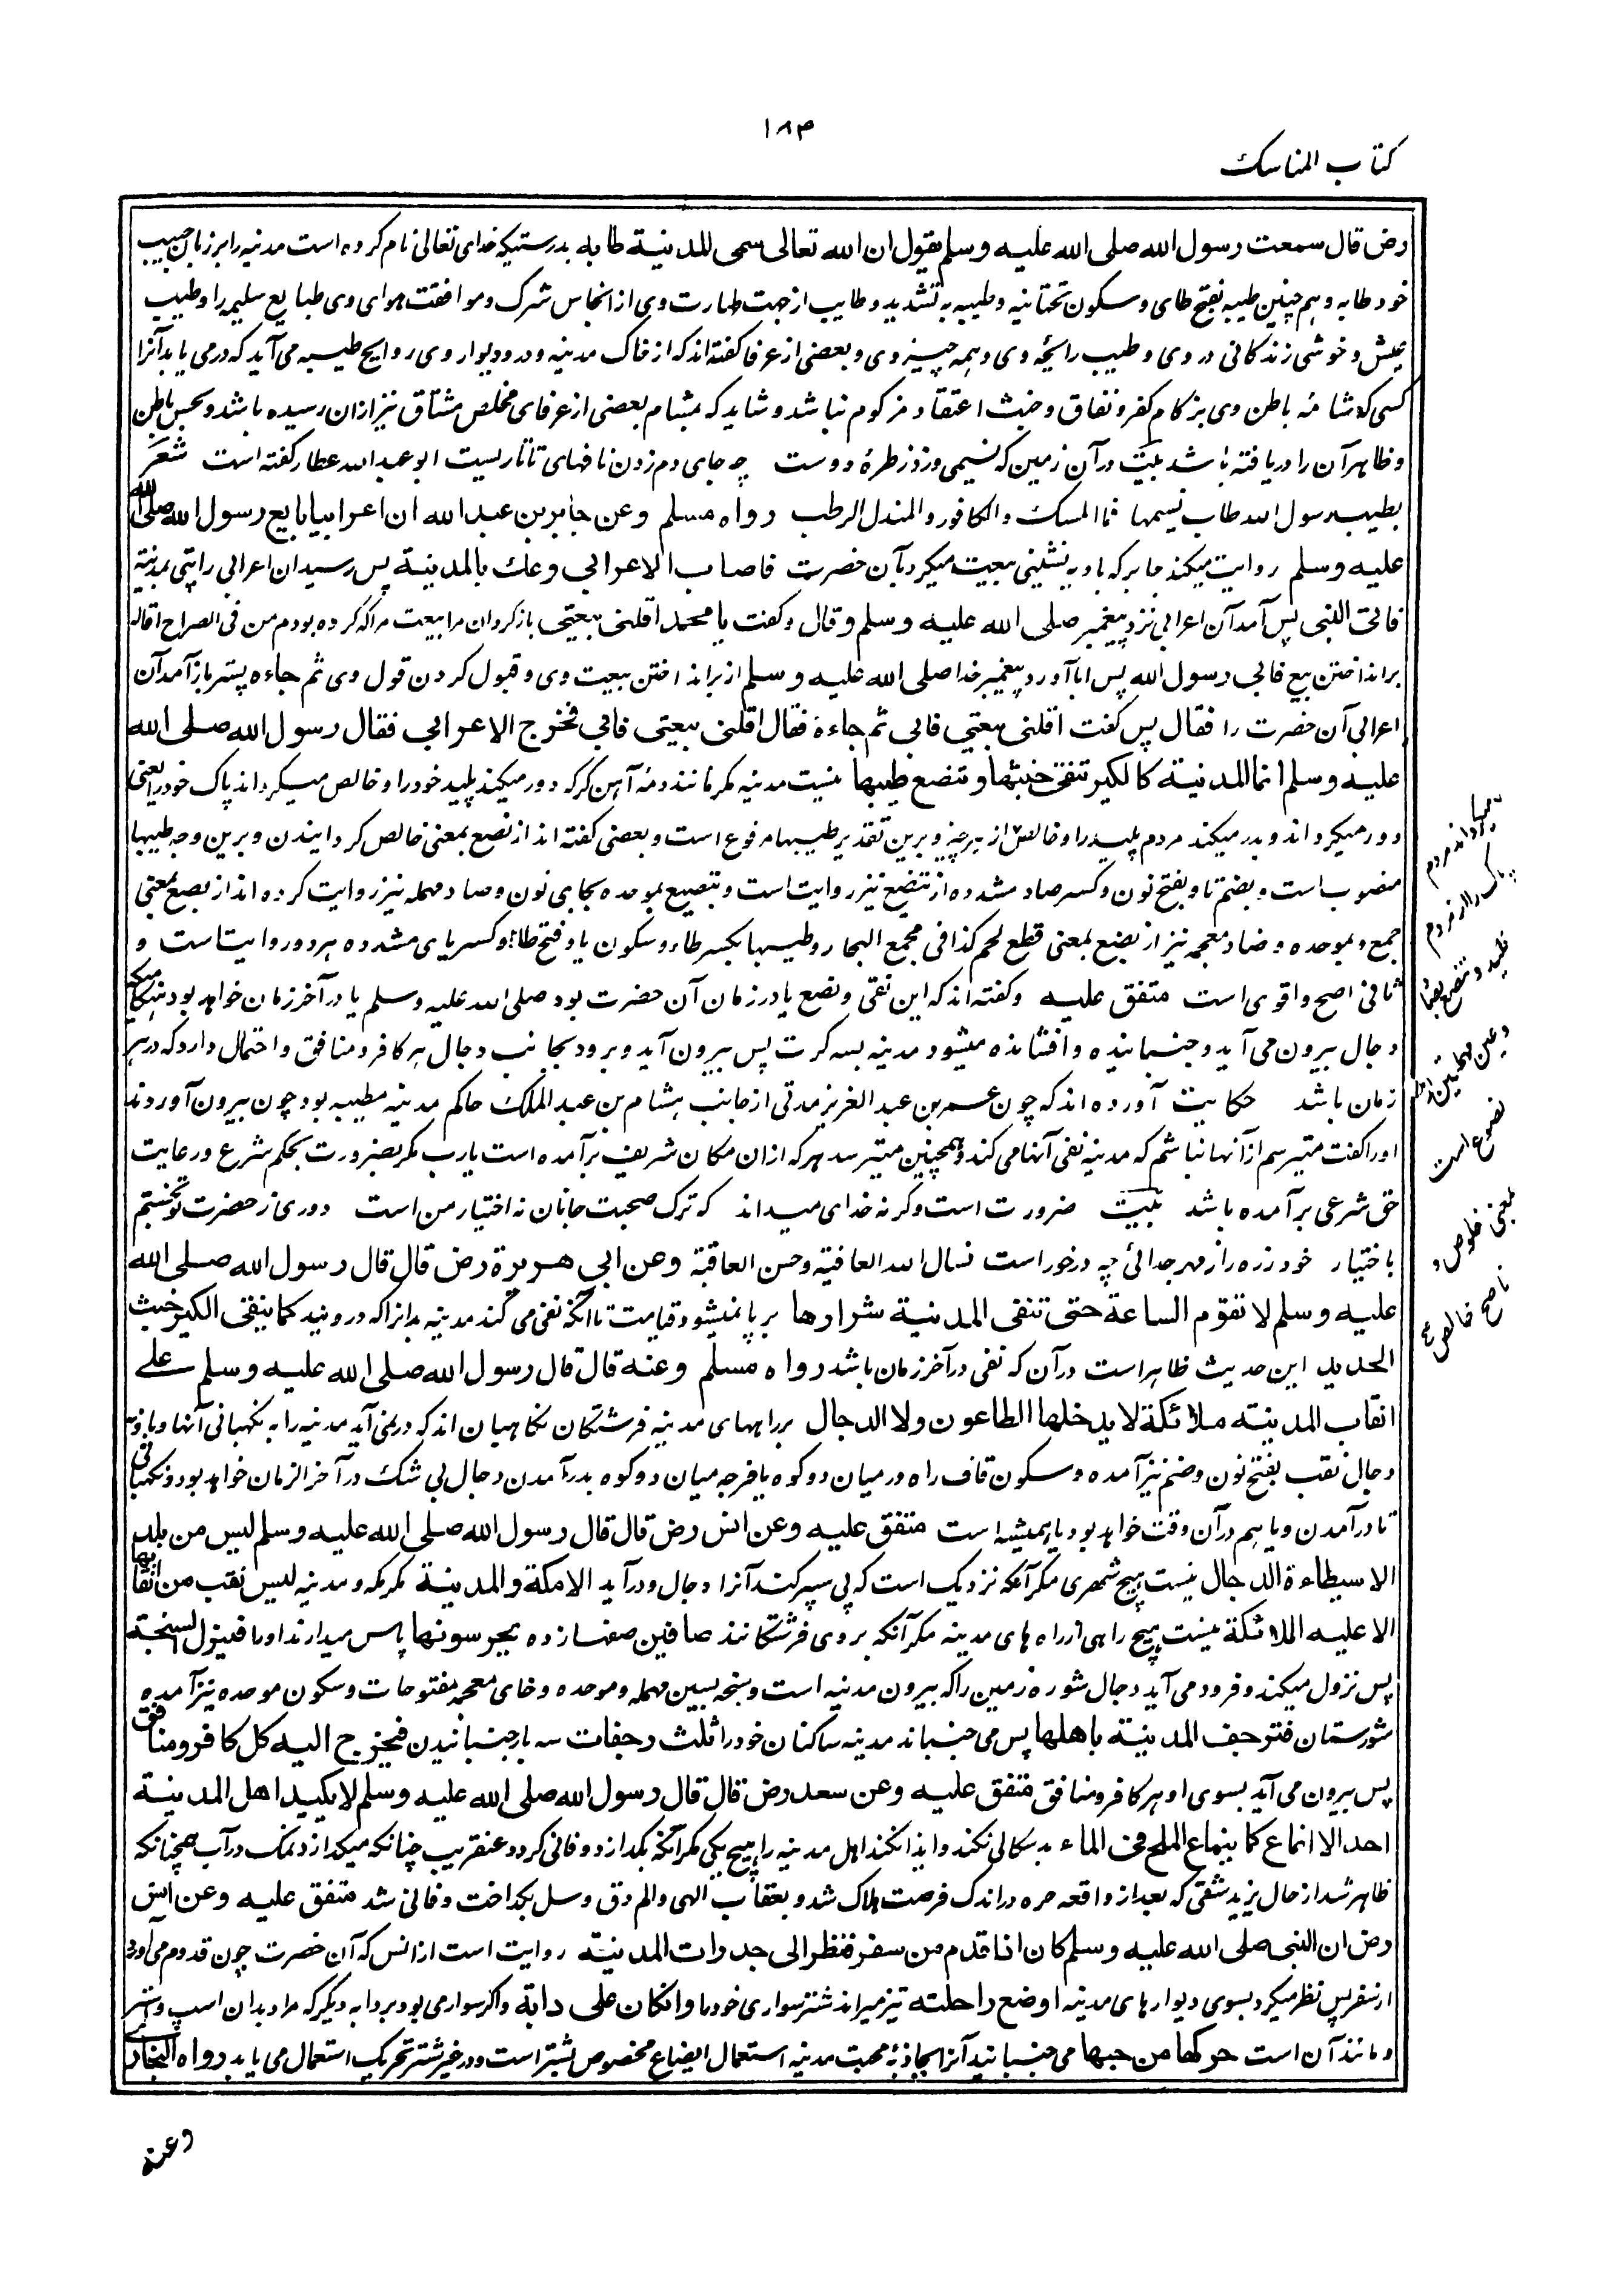 ۱۸۳
کتاب المناسک
رض قال سمعت رسول الله صلی الله علیه وسلم یقول ان الله تعالی سمی المدینة طابه بدرستیکه خدای تعالی نام کرده است مدینه را بر زبان حبیب
خود طابه و همچنین طیبه بفتح طای و سکون تحتانیه و طیبه به تشدید و طایب از جهت طهارت وی از انجاس شرک و موافقت هوای وی طبایع سلیمه را و طیب
عیش و خوشی زندگانی در وی و طیب رائحه وی و همه چیز وی و بعضی از عرفا گفته اند که از خاک مدینه و در و دیوار وی روایح طیبه می آید که درمی یابد آنرا
کسی که شامه باطن وی بزکام کفر و نفاق و خبث اعتقاد مزکوم نباشد و شاید که مشام بعضی از عرفای مخلص مشتاق نیز ازان رسیده باشد و بحس باطن
و ظاهر آن را دریافته باشد بیت در آن زمین که نسیمی وزد ز طرهٔ دوست چه جای دم زدن نافهای تاتاریست ابو عبد الله عطار گفته است شعر
بطیب رسول الله طاب نسیمها فما المسک والکافور والمندل الرطب رواه مسلم وعن جابر بن عبد الله ان اعرابیا بایع رسول الله صلی الله
علیه وسلم روایت میکند جابر که بادیه نشینی بیعت میکرد بآن حضرت فاصاب الاعرابی وعك بالمدینة پس رسید ان اعرابی را تپی بمدینة
فاتی النبی پس آمد آن اعرابی نزد پیغمبر صلی الله علیه وسلم وقال و گفت یا محمد اقلنی بیعتی بازگردان مرا بیعت مرا که کرده بودم من فی الصراح اقاله
برانداختن بیع فابی رسول الله پس ابا آورد پیغمبر خدا صلی الله علیه وسلم از برانداختن بیعت وی و قبول کردن قول وی ثم جاءه پستر باز آمد آن
اعرابی آن حضرت را فقال پس گفت اقلنی بیعتی فابی ثم جاءه فقال اقلنی بیعتی فابی فخرج الاعرابی فقال رسول الله صلی الله
علیه وسلم انما المدینة کالکیر تنفی خبثها وتنصع طیبها نیست مدینه مگر مانند دمهٔ آهن گر که دور میکند پلید خود را و خالص میگرداند پاک خود را یعنی
دور میگرداند و بدر میکند مردم پلید را و خالص از هر چیز و برین تقدیر طیبها مرفوع است و بعضی گفته اند از نصع بمعنی خالص گردانیدن و برین وجه طیبها
منصوب است و بضم تا و بفتح نون و کسر صاد مشدده از تنصیع نیز روایت است و تبصیع بموحده بجای نون و صاد مهمله نیز روایت کرده اند از بصع بمعنی
جمع و بموحده و ضاد معجمه نیز از بضع بمعنی قطع لحم کذا فی مجمع البحار و طیبها بکسر طاء و سکون یا و فتح طا و کسر یای مشدده هر دو روایت است و
ثانی اصح و اقوی است متفق علیه و گفته اند که این نفی و نصع یا در زمان آن حضرت بود صلی الله علیه وسلم یا در آخر زمان خواهد بود هنگامیکه
دجال بیرون می آید و جنبانیده و افشانده میشود مدینه بسه کرت پس بیرون آید و برود بجانب دجال هر کافر و منافق و احتمال دارد که در هر
زمان باشد حکایت آورده اند که چون عمر بن عبد العزیز مدتی از جانب هشام بن عبد الملک حاکم مدینه مطیبه بود چون بیرون آوردند
او را گفت میترسم از آنها نباشم که مدینه نفی آنها می کند و همچنین میترسد هر که ازان مکان شریف برآمده است یارب مگر بضرورت بحکم شرع و رعایت
حق شرعی برآمده باشد بیت ضرورت است وگرنه خدای میداند که ترک صحبت جانان نه اختیار من است دوری ز حضرت تو نجستم
باختیار خود ذره را ز مهر جدائی چه درخور است نسال الله العافیة وحسن العاقبة وعن ابی هریرة رض قال قال رسول الله صلی الله
علیه وسلم لا تقوم الساعة حتی تنفی المدینة شرارها برپا نمیشود قیامت تا آنکه نفی می کند مدینه بدانرا که درویند کما ینفی الکیر خبث
الحدید این حدیث ظاهر است در آن که نفی در آخر زمان باشد رواه مسلم وعنه قال قال رسول الله صلی الله علیه وسلم علی
انقاب المدینة ملائکة لا یدخلها الطاعون ولا الدجال بر راههای مدینه فرشتگان نگاهبان اند که درنمی آید مدینه را به نگهبانی آنها وبا و نه
دجال نقب بفتح نون و ضم نیز آمده و سکون قاف راه در میان دو کوه یا فرجه میان دو کوه بدرآمدن دجال بی شک در آخر الزمان خواهد بود و نگهبانی
تا درآمدن وبا هم در آن وقت خواهد بود یا همیشه است متفق علیه وعن انس رض قال قال رسول الله صلی الله علیه وسلم لیس من بلد
الا سیطاءه الدجال نیست هیچ شهری مگر آنکه نزدیک است که پی سپر کند آنرا دجال و درآید الا مکة والمدینة مگر مکه و مدینه لیس نقب من انقابها
الا علیه الملائکة نیست هیچ راهی از راه های مدینه مگر آنکه بر وی فرشتگانند صافین صفها زده یحرسونها پاس میدارند او را فینزل السبخة
پس نزول میکند و فرود می آید دجال شوره زمین را که بیرون مدینه است و سبخه بسین مهمله و موحده و خای معجمه مفتوحات و سکون موحده نیز آمده
شورستان فترجف المدینة باهلها پس می جنباند مدینه ساکنان خود را ثلث رجفات سه بار جنبانیدن فیخرج الیه کل کافر ومنافق
پس بیرون می آید بسوی او هر کافر و منافق متفق علیه وعن سعد رض قال قال رسول الله صلی الله علیه وسلم لا یکید اهل المدینة
احد الا انماع کما ینماع الملح فی الماء بدسگالی نکند و ایذا نکند اهل مدینه را هیچ یکی مگر آنکه بگدازد و فانی گردد عنقریب چنانکه میگدازد نمک در آب همچنانکه
ظاهر شد از حال یزید شقی که بعد از واقعه حره در اندک فرصت هلاک شد و بعقاب الهی و الم دق و سل بگداخت و فانی شد متفق علیه وعن انس
رض ان النبی صلی الله علیه وسلم کان اذا قدم من سفر فنظر الی جدرات المدینة روایت است از انس که آن حضرت چون قدوم می آورد
از سفر پس نظر میکرد بسوی دیوارهای مدینه اوضع راحلته تیز میراند شتر سواری خود را وانکان علی دابة و اگر سوار می بود بر دابه دیگر که مراد بدان اسپ و استر
و مانند آن است حرکها من حبها می جنبانید آنرا بجاذبهٔ محبت مدینه استعمال ایضاع مخصوص بشتر است و در غیر شتر تحریک استعمال می یابد رواه البخاری
میگرداند مردم
پاک را از مردم
پلید و تنصع بفتح تا
و عین مهملتین از
نصوع است
بمعنی خلوص و
ناصع خالص
وعنه